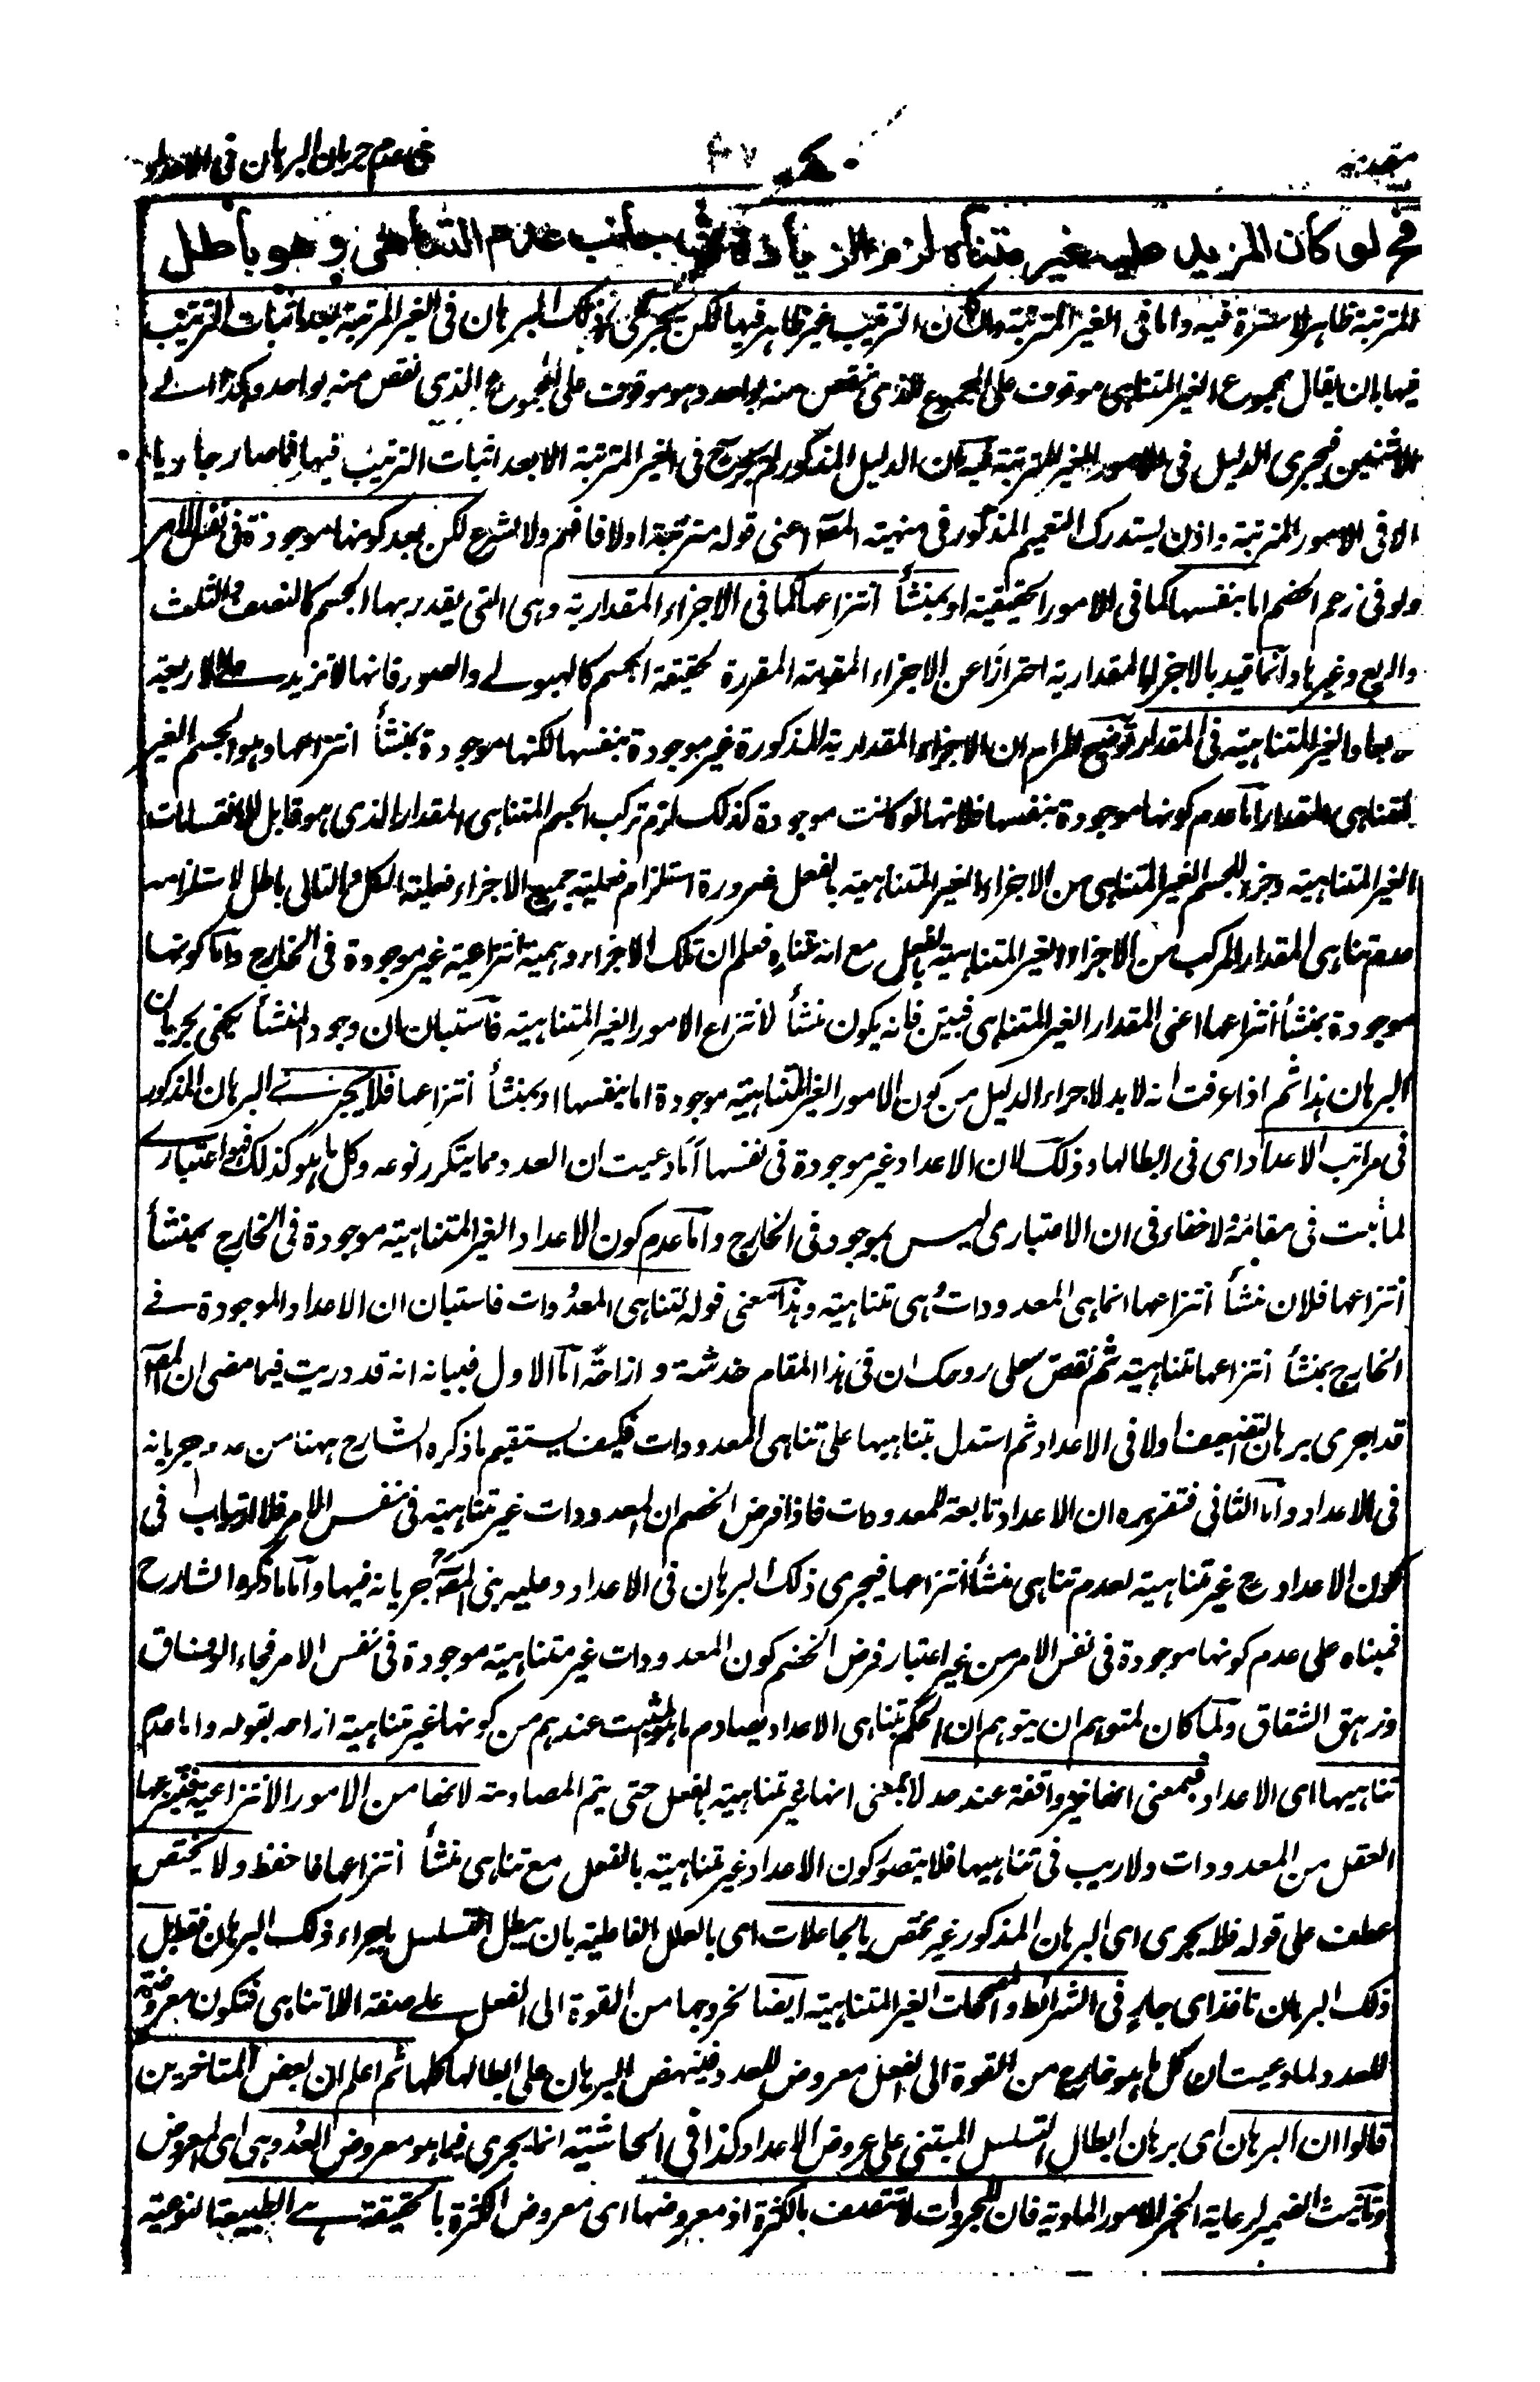 مقدمه
٤٧
فى عدم جريان البرهان فى الاعداد
فح لو كان المزيد عليه غير متناه لزم الزيادة فى جانب عدم التناهى وهو باطل
المترتبة ظاهر لا سترة فيه واما فى الغير المترتبة وان كان الترتيب غير ظاهر فيها لكن يجرى ذلك البرهان فى الغير المرتبة بعد اثبات الترتيب
فيها بان يقال مجموع الغير المتناهى موقوف على المجموع الذى نقص منه بواحد وهو موقوف على المجموع الذى نقص منه بواحد وهكذا الے
الاثنين فيجرى الدليل فى الامور الغير المترتبة فيه ان الدليل المذكور لم يجر ح فى الغير المترتبة الا بعد اثبات الترتيب فيها فما صار جاريا
الا فى الامور المترتبة واذن يستدرك التعميم المذكور فى منهية المصـ اعنى قوله مترتبة اولا فافهم ولا لشرع لكن بعد كونها موجودة فى نفس الامر
ولو فى زعم الخصم اما بنفسها كما فى الامور الحقيقية او بمنشأ انتزاعها كما فى الاجزاء المقدارية وهى التى يقدر بها الجسم كالنصف والثلث
والربع وغيرها وانما قيد بالاجزاء المقدارية احترازا عن الاجزاء المقومة المقررة لحقيقة الجسم كالهيولے والصور فانها لا تزيد علے الاربعة
والغير المتناهية فى المقدار توضيح المرام ان الاجزاء المقدارية المذكورة غير موجودة بنفسها لكنها موجودة بمنشأ انتزاعها وهو الجسم الغير
المتناهى المقدار اما عدم كونها موجودة بنفسها فلانها لو كانت موجودة كذلك لزم تركب الجسم المتناهى المقدار الذى هو قابل للانقسامات
الغير المتناهية وجزء للجسم الغير المتناهى من الاجزاء الغير المتناهية بالفعل ضرورة استلزام فعلية جميع الاجزاء فعلية الكل والتالى باطل لاستلزامه
عدم تناهى المقدار المركب من الاجزاء الغير المتناهية بالفعل مع انه متناه فعلم ان تلك الاجزاء وهمية انتزاعية غير موجودة فى الخارج واما كونها
موجودة بمنشأ انتزاعها اعنى المقدار الغير المتناهى فبين فانه يكون منشأ لانتزاع الامور الغير المتناهية فاستبان ان وجود المنشأ يكفى بجريان
البرهان هذا ثم اذا عرفت انه لا بد لاجراء الدليل من كون الامور الغير المتناهية موجودة اما بنفسها او بمنشأ انتزاعها فلا يجرے البرهان المذكور
فى مراتب الاعداد اى فى ابطالها وذلك لان الاعداد غير موجودة فى نفسها اما وعيت ان العدد مما يتكرر نوعه وكل ما هو كذلك فهو اعتبارے
لما ثبت فى مقامه ولا خفاء فى ان الاعتبارى ليس بموجود فى الخارج واما عدم كون الاعداد الغير المتناهية موجودة فى الخارج بمنشأ
انتزاعها فلان منشأ انتزاعها انما هى المعدودات وهى متناهية وهذا معنى قوله لتناهى المعدودات فاستبان ان الاعداد الموجودة فے
الخارج بمنشأ انتزاعها متناهية ثم نقص على روحك ان فى هذا المقام خدشة وازاحة اما الاول فبيانه انه قد دريت فيما مضى ان المصـ
قد اجرى برهان التضعيف اولا فى الاعداد ثم استدل بتناهيها على تناهى المعدودات فكيف يستقيم ما ذكره الشارح ههنا من عدم جريانه
فى الاعداد واما الثانى فتقريره ان الاعداد تابعة للمعدودات فاذا فرض الخصم ان المعدودات غير متناهية فى نفس الامر فلا ارتياب فى
كون الاعداد ح غير متناهية لعدم تناهى منشأ انتزاعها فيجرى ذلك البرهان فى الاعداد وعليه بنى المصـ جريانه فيها واما ما ذكره الشارح
فمبناه على عدم كونها موجودة فى نفس الامر من غير اعتبار فرض الخصم كون المعدودات غير متناهية موجودة فى نفس الامر فجاء الوفاق
وزهق الشقاق ولما كان لمتوهم ان يتوهم ان الحكم بتناهى الاعداد يصادم ما هو المثبت عندهم من كونها غير متناهية ازاحه بقوله واما عدم
تناهيها اى الاعداد فبمعنى انها غير واقفة عند حد لا بمعنى انها غير متناهية بالفعل حتى يتم المصادمة لانها من الامور الانتزاعية فينتزعها
العقل من المعدودات ولا ريب فى تناهيها فلا يتصور كون الاعداد غير متناهية بالفعل مع تناهى منشأ انتزاعها فاحفظ ولا يختص
عطف على قوله فلا يجرى اى البرهان المذكور غير مختص بالجاعلات اى بالعلل الفاعلية بان يبطل التسلسل باجراء ذلك البرهان فقط بل
ذلك البرهان نافذ اى جار فى الشرائط والمصححات الغير المتناهية ايضا لخروجها من القوة الى الفعل علے صفة اللاتناهى فتكون معروضة
للعدد لما وعيت ان كل ما هو خارج من القوة الى الفعل معروض للعدد فينهض البرهان على ابطالها كلها ثم اعلم ان بعض المتاخرين
قالوا ان البرهان اى برهان ابطال التسلسل المبتنى على عروض الاعداد كذا فى الحاشية انما يجرى فيما هو معروض العدد وهى اى المعروض
وتانيث الضمير لرعاية الخبر الامور المادية فان المجردات لا تتصف بالكثرة اذ معروضها اى معروض الكثرة بالحقيقة هے الطبيعة النوعية